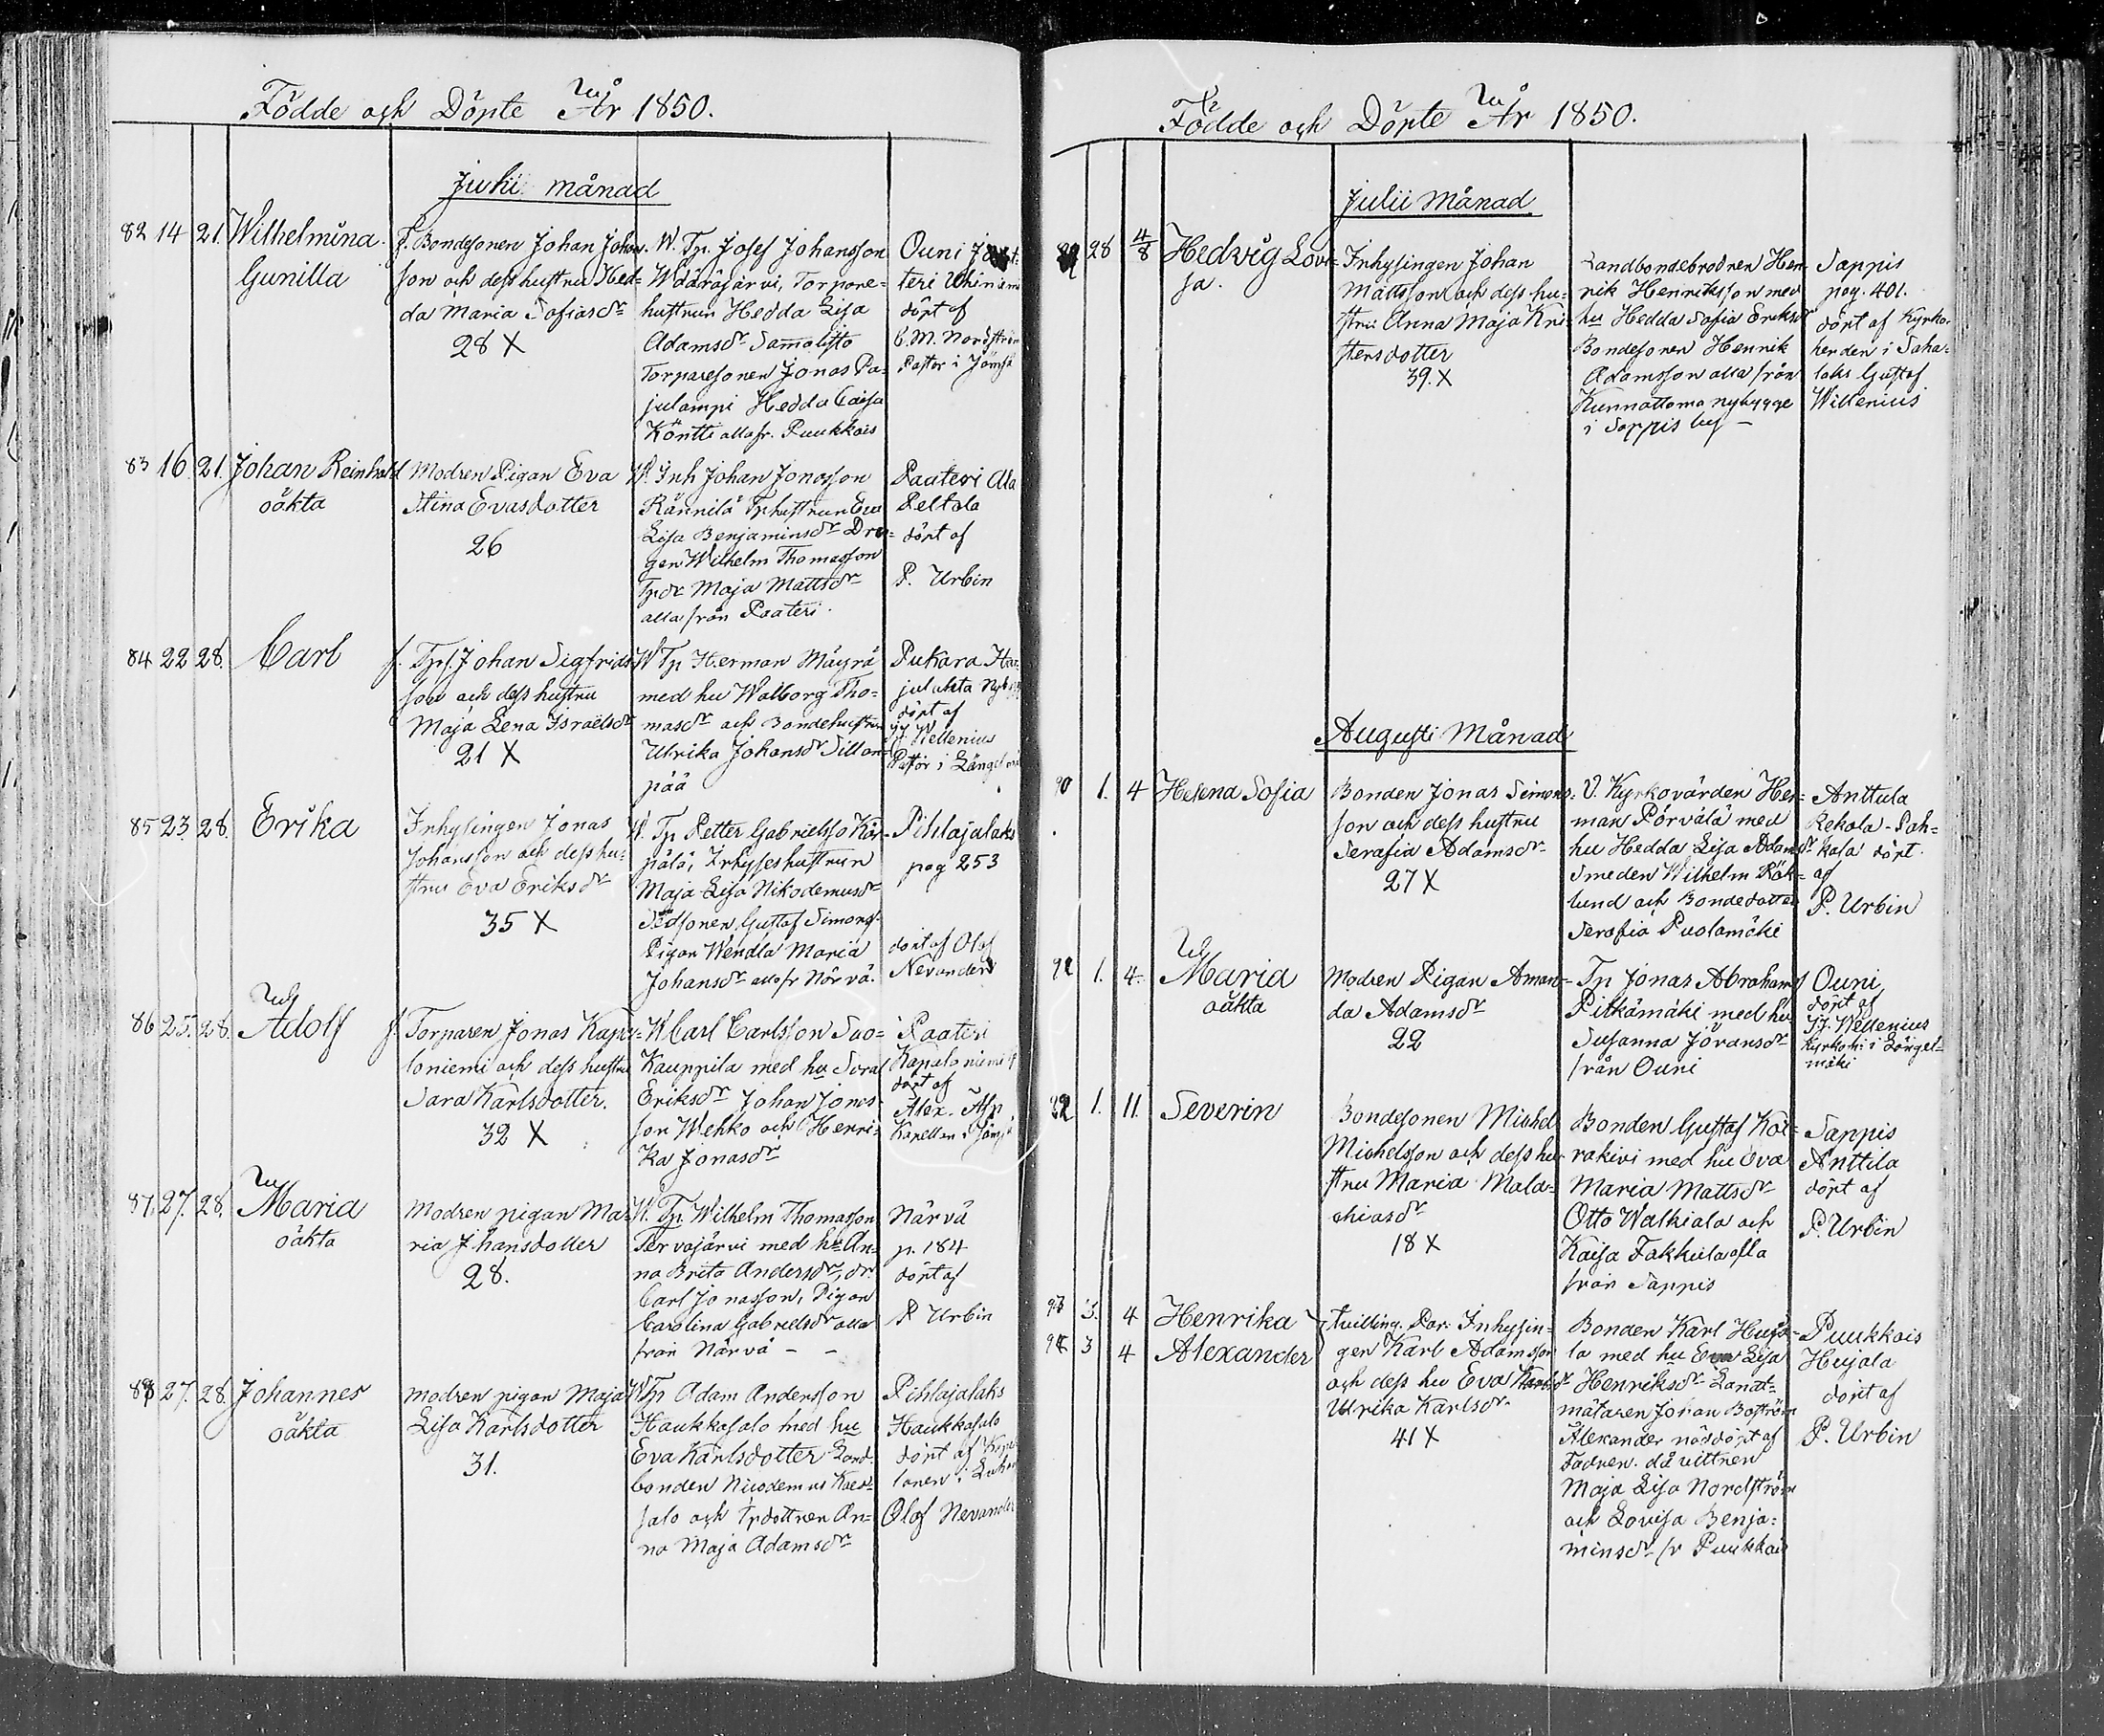 Födde och Döpte År 1850.
Julii månad
82 14 21. Wilhelmina Gunilla
f. Bondesonen Johan Johans-
son och dess hustru Hed-
da Maria Sofiasdr
28 X
W. Tp. Josef Johansson
Wääräjärvi, Torpare-
hustrun Hedda Lisa
Adamsdr Sammalisto
Torparesonen Jonas Pa-
julampi Hedda Caisa
Köntti alla fr. Puukkois
Ouni
döpt af
C. M. Nordström
Pastor i Jämsä
83 16 21. Johan Reinhold
oäkta
Modren Pigan Eva
Stina Evasdotter
26
W. Inh Johan Jonasson
Rännilä Tphustrun Eva
Lisa Benjaminsdr Dren-
gen Wilhelm Thomasson
Tpdr Maja Mattsdr
alla från Paateri.
Paateri Ala
Peltola
döpt af
P. Urbin
84 22 28. Carl
f. Tpr. Johan Sigfrids-
son och dess hustru
Maja Lena Israelsdr
21 X
W Tp Herman Mäyrä
med hu Walborg Tho-
masdr och Bondehustrun
Ulrika Johansdr Sillan-
pää
Pukara Har-
julahta Nyby
döpt af
J.J. Wellenius
Pastor i Längelmäki
85 23. 28. Erika
Inhysingen Jonas
Johansson och dess hu-
stru Eva Eriksdr
35 X
W. Tp Petter Gabrielsso Kär-
pälä, Inhyseshustrun
Maja Lisa Nikodemusdr
Gustaf Simonss
Pigan Wendla Maria
Johansdr alla fr Närvä.
Pihlajalaks
pag 253
döpt af Olof
Nevander
86 25. 28. Adolf
f. Torparen Jonas Kapa-
loniemi och dess hustru
Sara Karlsdotter.
32 X
W Carl Carlsson Sao-
Kauppila med hu Sara
Eriksdr Johan Jonas-
son Wehko och Henri-
ka Jonasdr
Paateri
Kapaloniemi
döpt af
Alex. Alp
Kapellan i Jämsä
87. 27. 28. Maria
oäkta
Modren pigan Ma-
ria Johansdotter
28.
W. Tp. Wilhelm Thomasson
Tervajärvi med hu An-
na Brita Andersdr, dr.
Carl Jonasson, Pigan
Carolina Gabrielsdr alla
från Närvä -  -
Närvä
p. 184
döpt af
P Urbin
88 27. 28. Johannes
oäkta
modren pigan Maja
Lisa Karlsdotter
31.
W Tp Adam Andersson
Haukkasalo med hu
Eva Karlsdotter Land-
bonden Nicodemus
salo och Tpdottren An-
na Maja Adamsdr
Pihlajalaks
Haukkasalo
döpt af Kapel-
lanen i
Olof Nevander
Födde och Döpte År 1850.
Julii Månad
89 28 4/8 Hedvig Lovi-
sa.
Inhysingen Johan
Mattsson och dess hu-
stru Anna Maja Kri-
stersdotter
39. X
Landbondebrodren Hen-
rik Henriksson med
hu Hedda Sofia Eriksdr
Bondesonen Henrik
Adamsson alla från
Kunnattoma nybygge
i Sappis by -
Sappis
pag. 401.
döpt af Kyrko-
herden i Saha-
laks Gustaf
Willenius
Augusti Månad
90 1. 4 Helena Sofia
Bonden Jonas Simons-
son och dess hustru
Serafia Adamsdr
27 X
V. Kyrkovärden Her-
man Pörvälä med
hu Hedda Lisa Adamsdr
Smeden Wilhelm Rök-
lund och Bondedotter
Serafia Puolamäki
Anttula
Rekola-Pah-
kala döpt.
af
P. Urbin
91 1. 4. Maria
oäkta
Modren Pigan Aman-
da Adamsdr
22
Tp Jonas Abrahams
Pitkämäki med hu
Susanna Göransdr
från Ouni
Ouni
döpt af
J.J. Wellenius
Kyrkoh. i Längel-
mäki
92 1. 11. Severin
Bondesonen Michel
Michelsson och dess hu-
stru Maria Mala-
chiasdr
18 X
Bonden Gustaf Koi-
rakivi med hu Eva
Maria Mattsdr
Otto Walkiala och
Kaisa Fakkula alla
från Sappis
Sappis
Anttila
döpt af
P. Urbin
93 3. 4 Henrika
94 3 4 Alexander
Tvilling. Par. Inhysin-
gen Karl Adamsson
och dess hu Eva
Ulrika Karlsdr
41 X
Bonden Karl Huja-
la med hu Eva Lisa
Henriksdr Landt-
mätaren Johan Boström
Alexander nöddöpt af
Fadren. då vittnen
Maja Lisa Nordström
och Lovisa Benja-
minsdr fr Puukkais
Puukkois
Hujala
döpt af
P. Urbin